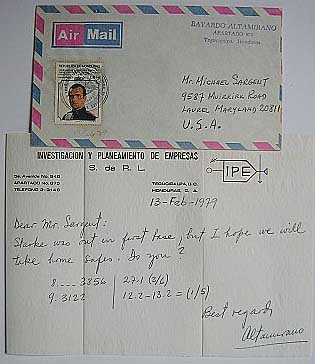 Air Mail
BAYARDO ALTAMIRANO
APARTADO 873
Tegucigalpa, Honduras
REPUBLICA DE HONDURAS
Mr. Michael Sargent
9587 Muirkirk Road
Laurel Maryland 20811
U.S.A.
INVESTIGACION Y PLANEAMIENTO DE EMPRESAS
S. de R. L.
APARTADO No. 873
TEGUCIGALPA, D.C.
HONDURAS, C. A.
IPE
13-Feb-1979
Dear Mr. Sargent:
was out in first, but I hope we will
take home safes. Do you?
8 ... 3856 27.1 (2/6)
9. 3122 12.2-13.2 = (1/5)
Best regards
Altamirano